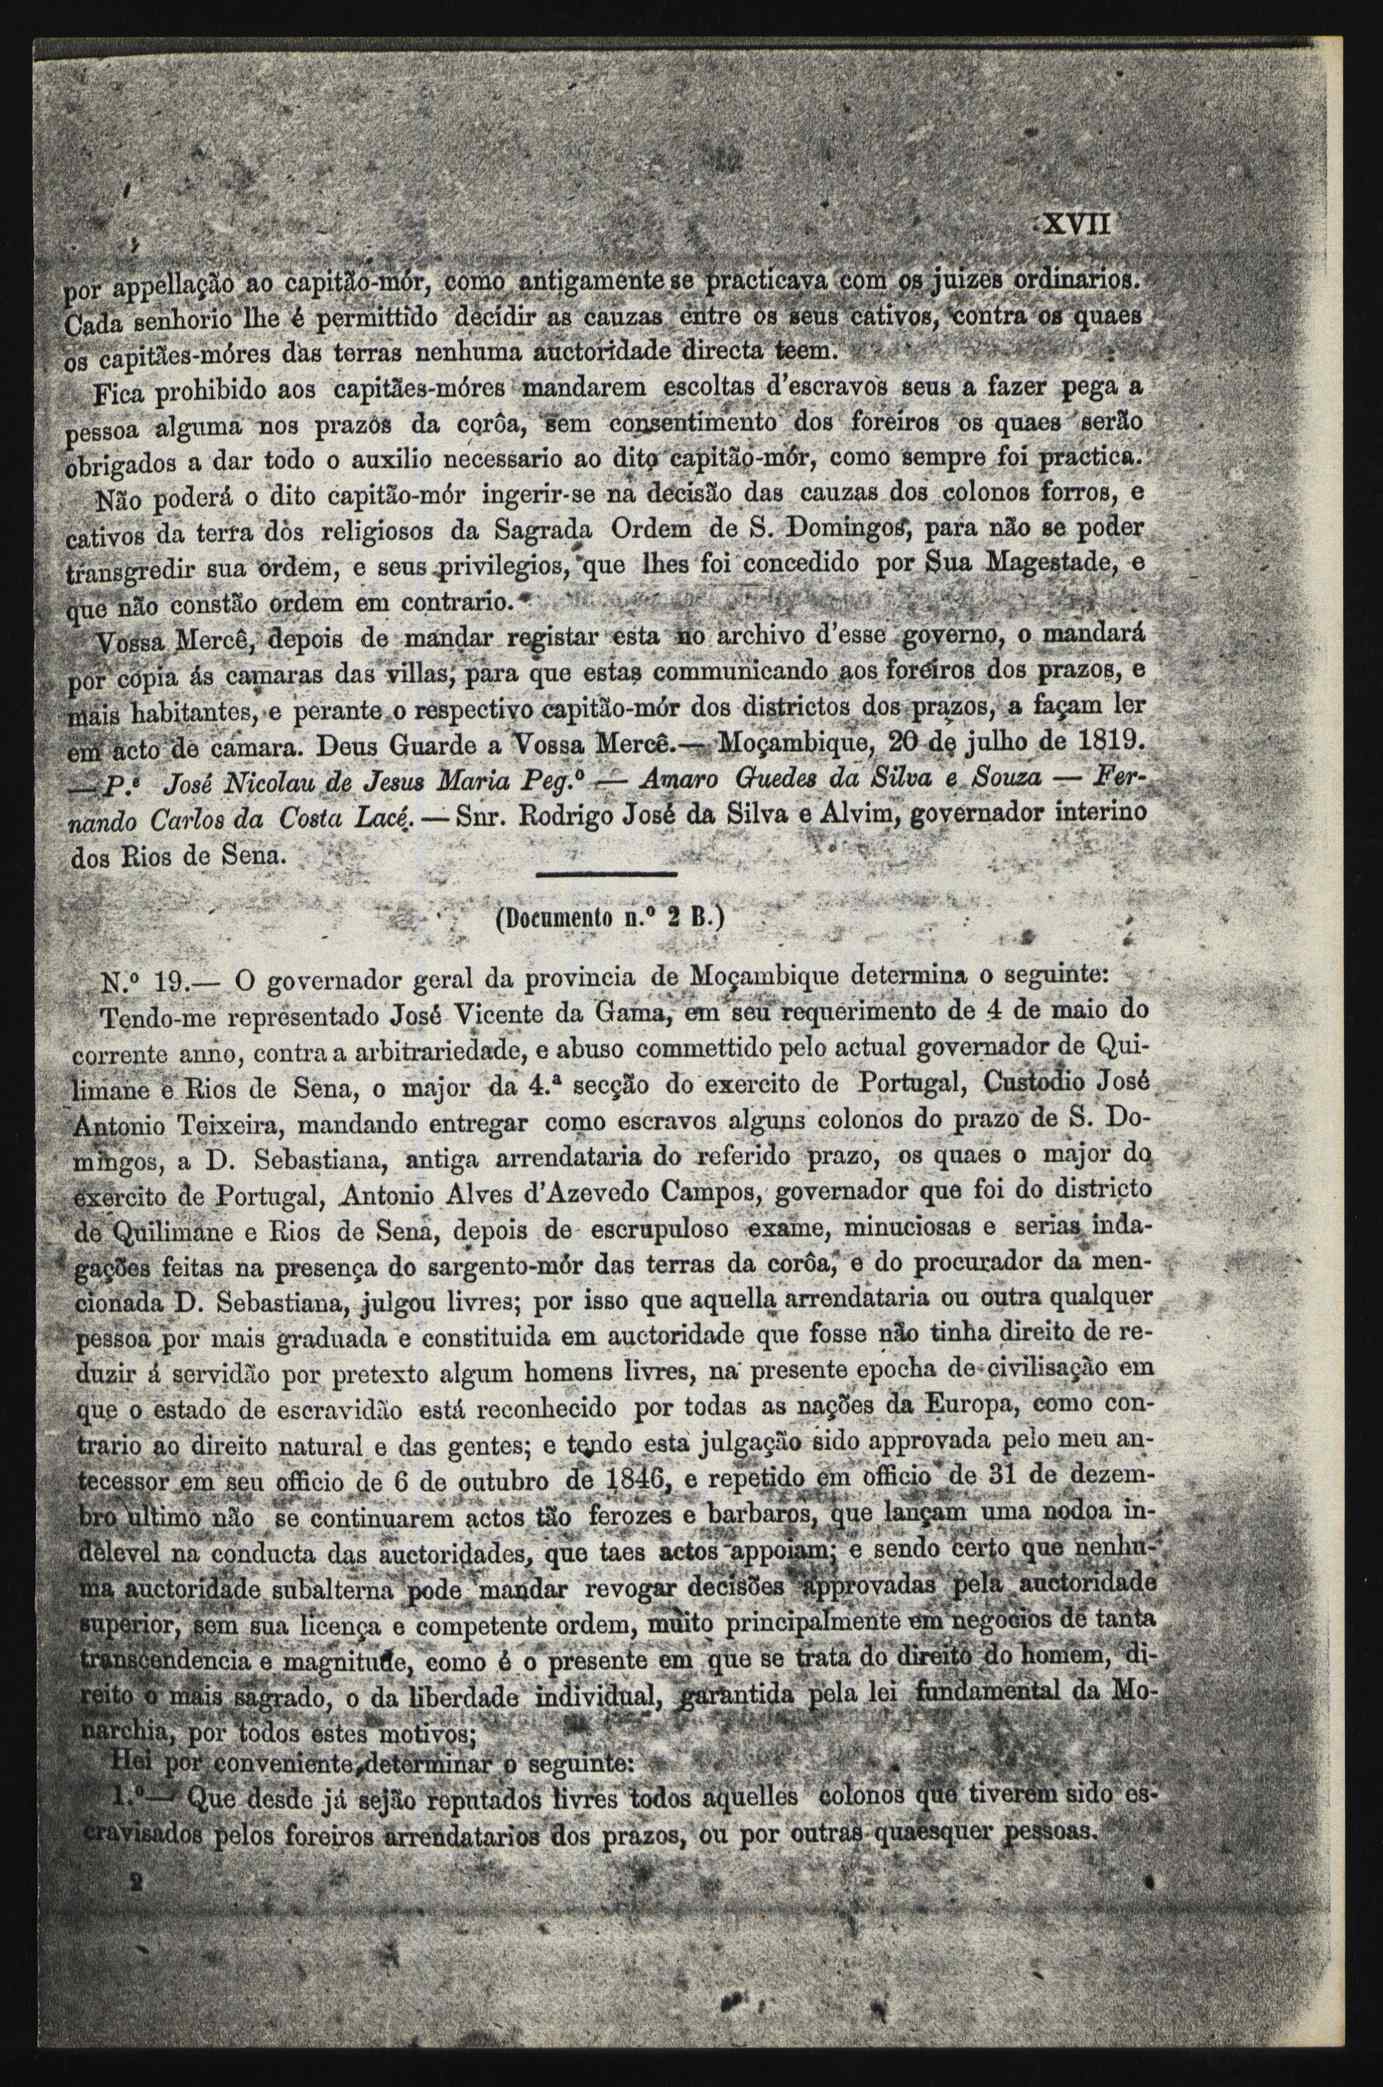 XVII
por appellação ao capitão-mór, como antigamente se practicava com os juizes ordinarios.
Cada senhorio lhe é permittido decidir as cauzas entre os seus cativos, contra os quaes
os capitães-móres das terras nenhuma auctoridade directa teem.
Fica prohibido aos capitães-móres mandarem escoltas d'escravos seus a fazer pega a
pessoa alguma nos prazos da corôa, sem consentimento dos foreiros os quaes serão
obrigados a dar todo o auxilio necessario ao dito capitão-mór, como sempre foi practica.
Não poderá o dito capitão-mór ingerir-se na decisão das cauzas dos colonos forros, e
cativos da terra dos religiosos da Sagrada Ordem de S. Domingos, para não se poder
transgredir sua ordem, e seus privilegios, que lhes foi concedido por Sua Magestade, e
que não constão ordem em contrario.
Vossa Mercê, depois de mandar registar esta no archivo d'esse governo, o mandará
por copia ás camaras das villas, para que estas communicando aos foreiros dos prazos, e
mais habitantes, e perante o respectivo capitão-mór dos districtos dos prazos, a façam ler
em acto de camara. Deus Guarde a Vossa Mercê.— Moçambique, 20 de julho de 1819.
—P.e José Nicolau de Jesus Maria Peg.º — Amaro Guedes da Silva e Souza — Fer-
nando Carlos da Costa Lacé. — Snr. Rodrigo José da Silva e Alvim, governador interino
dos Rios de Sena.
(Documento n.º 2 B.)
N.º 19.— O governador geral da provincia de Moçambique determina o seguinte:
Tendo-me representado José Vicente da Gama, em seu requerimento de 4 de maio do
corrente anno, contra a arbitrariedade, e abuso commettido pelo actual governador de Qui-
limane e Rios de Sena, o major da 4.ª secção do exercito de Portugal, Custodio José
Antonio Teixeira, mandando entregar como escravos alguns colonos do prazo de S. Do-
mingos, a D. Sebastiana, antiga arrendataria do referido prazo, os quaes o major do
exercito de Portugal, Antonio Alves d'Azevedo Campos, governador que foi do districto
de Quilimane e Rios de Sena, depois de escrupuloso exame, minuciosas e serias inda-
gações feitas na presença do sargento-mór das terras da corôa, e do procurador da men-
cionada D. Sebastiana, julgou livres; por isso que aquella arrendataria ou outra qualquer
pessoa por mais graduada e constituida em auctoridade que fosse não tinha direito de re-
duzir á servidão por pretexto algum homens livres, na presente epocha de civilisação em
que o estado de escravidão está reconhecido por todas as nações da Europa, como con-
trario ao direito natural e das gentes; e tendo esta julgação sido approvada pelo meu an-
tecessor em seu officio de 6 de outubro de 1846, e repetido em officio de 31 de dezem-
bro ultimo não se continuarem actos tão ferozes e barbaros, que lançam uma nodoa in-
delevel na conducta das auctoridades, que taes actos appoiam; e sendo certo que nenhu-
ma auctoridade subalterna pode mandar revogar decisões approvadas pela auctoridade
superior, sem sua licença e competente ordem, muito principalmente em negocios de tanta
transcendencia e magnitude, como é o presente em que se trata do direito do homem, di-
reito o mais sagrado, o da liberdade individual, garantida pela lei fundamental da Mo-
narchia, por todos estes motivos;
Hei por conveniente determinar o seguinte:
1.º— Que desde já sejão reputados livres todos aquelles colonos que tiverem sido es-
cravisados pelos foreiros arrendatarios dos prazos, ou por outras quaesquer pessoas.
2